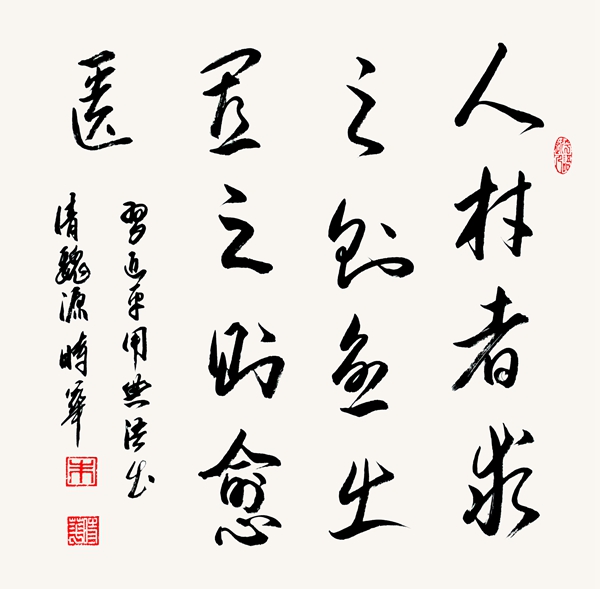 人材者求
之則愈出
置之則愈
匱
習近平用典語出
清魏源時華